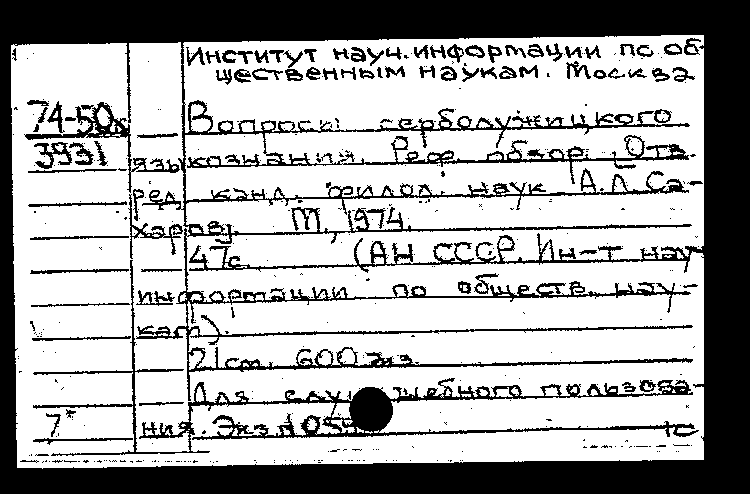 Институт науч. информации по об-
щественным наукам. Москва
74-50х Вопросы серболужицкого
3931 языкознания. Реф. обзор. Отв.
ред. канд. филол. наук А.Л. Са-
харов]. М., 1974.
47с. (АН СССР. Ин-т науч
информации по обществ. нау-
кам).
21см. 600 экз.
Для служебного пользова-
7* ния. Экз. №